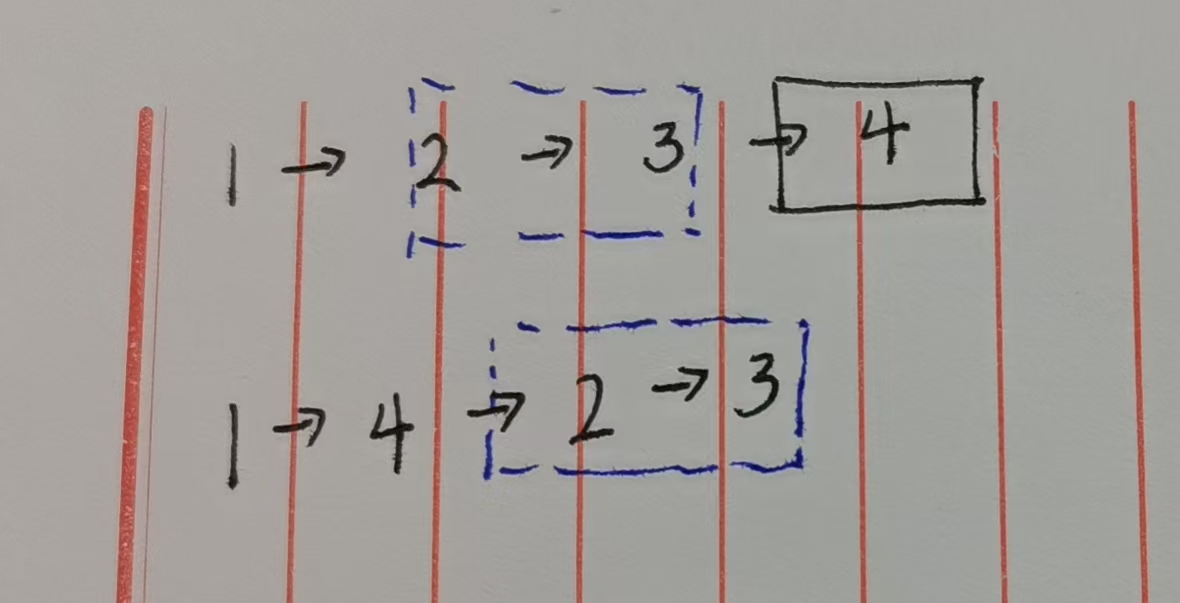 1 → 2 → 3 → 4
1 → 4 → 2 → 3